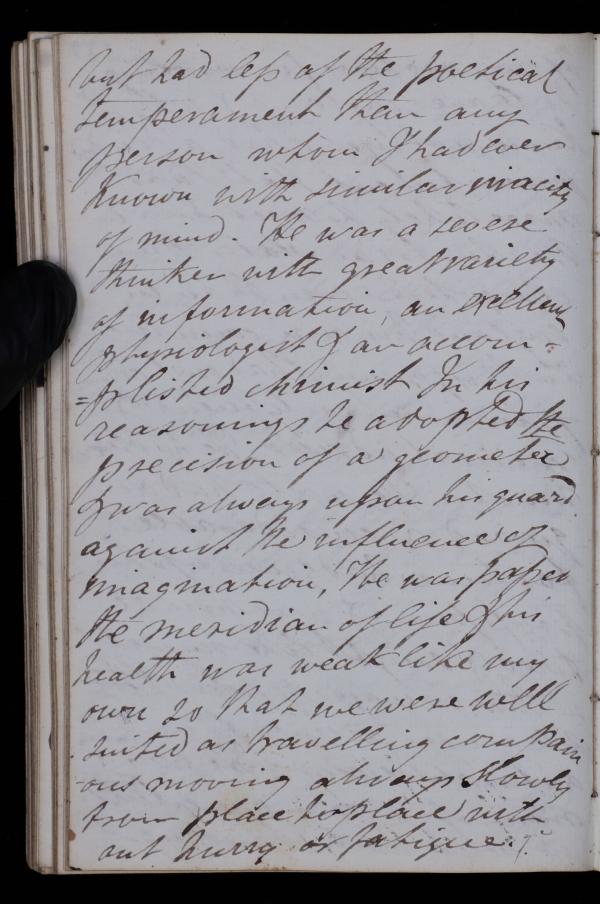 but had less of the poetical
temperament than any
person whom I had ever
known with similar vivacity
of mind. He was a severe
thinker with great variety
of information, an excellent
physiologist & an accom=
=plished chimist In his
reasonings he adopted the
precision of a geometer
& was always upon his guard
against the influence of
imagination, He was passed
the meridian of life & his
health was weak like my
own so that we were well
suited as travelling compani
-ons moving always slowly
from place to place with
out hurry or fatigue.